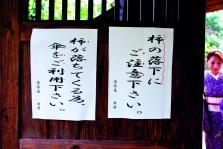 柿の落下に
ご注意下さい。
柿が落ちてくる為、
傘をご利用下さい。